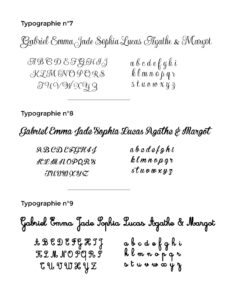 Typographie n°7
Gabriel Emma Jade Sophia Lucas Agathe & Margot
A B C D E F G H I J
K L M N O P Q R S
T U V W X Y Z
a b c d e f g h i j
k l m n o p q r
s t u v w x y z
Typographie n°8
Gabriel Emma Jade Sophia Lucas Agathe & Margot
A B C D E F G H I J
K L M N O P Q R S
T U V W X Y Z
a b c d e f g h i
k l m n o p q r
s t u v w x y z
Typographie n°9
Gabriel Emma Jade Sophia Lucas Agathe & Margot
A B C D E F G H I J
K L M N O P Q R S
T U V W X Y Z
a b c d e f g h i
k l m n o p q r
s t u v w x y z